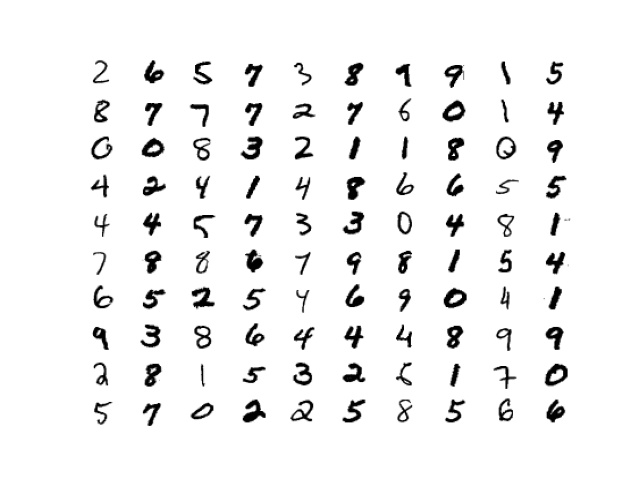 2 6 5 7 3 8 9 9 1 5
8 7 7 7 2 7 6 0 1 4
0 0 8 3 2 1 1 8 0 9
4 2 4 1 4 8 6 6 5 5
4 4 5 7 3 3 0 4 8 1
7 8 8 6 7 9 8 1 5 4
6 5 2 5 4 6 9 0 4 1
9 3 8 6 4 4 4 8 9 9
2 8 1 5 3 2 6 1 7 0
5 7 0 2 2 5 8 5 6 6